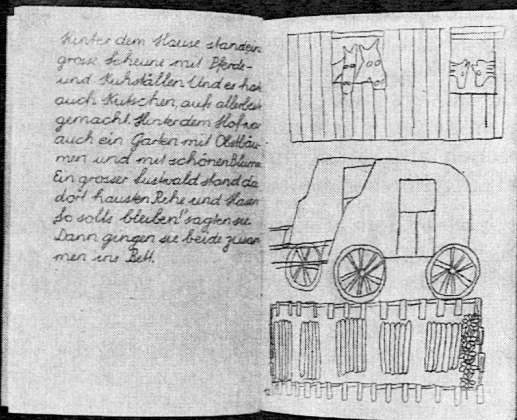 Hinter dem Hause stand ein
grosse Scheune mit Pferde-
und Kuhställen. Und es hat
auch Kutschen, aufs allerbes
gemacht. Hinter dem Hof
auch ein Garten mit Obstbäu-
men und mit schönen Blume
Ein grosser Lustwald stand da
dort hausten Rehe und Hasen
So solls bleiben" sagten sie.
Dann gingen sie beide zusam
men ins Bett.